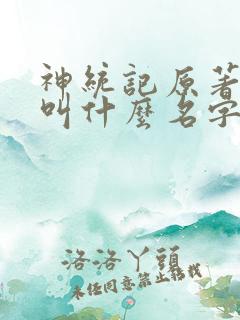 神統記原著
叫什麼名字
洛洛丫頭
未经同意禁止转载